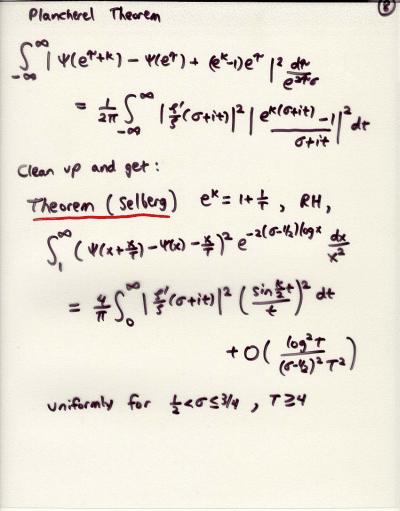 Plancherel Theorem
⑧
∫_{-∞}^{∞} | Ψ(e^{τ+k}) - Ψ(e^τ) + (e^k-1)e^τ |² dτ/e^{2τσ}
= 1/2π ∫_{-∞}^{∞} | ζ'/ζ (σ+it)|² | e^{k(σ+it)} -1 / σ+it |² dt
Clean up and get:
Theorem (Selberg) e^k = 1+ 1/T , RH,
∫_1^∞ ( Ψ(x+x/T) - Ψ(x) - x/T )² e^{-2(σ-1/2)log x} dx/x²
= 4/π ∫_0^∞ | ζ'/ζ (σ+it)|² ( sin k/2 t / t )² dt
+ O( log²T / (σ-1/2)² T² )
uniformly for 1/2 < σ ≤ 3/4 , T ≥ 4